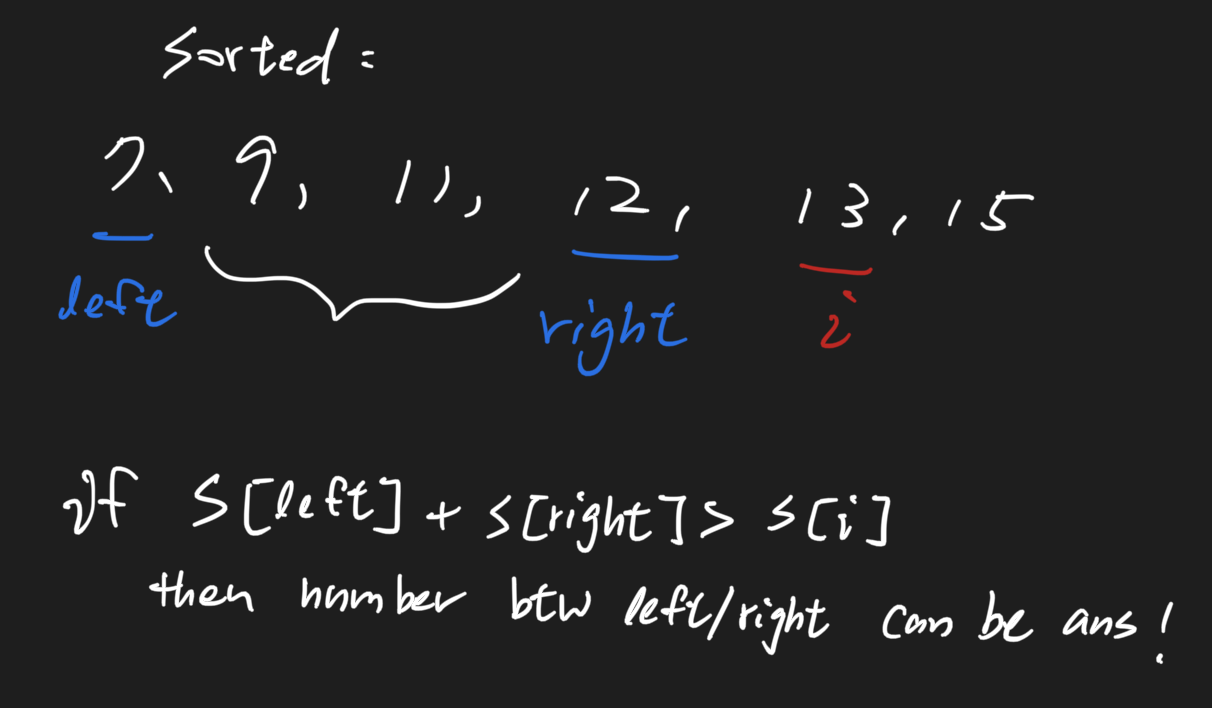 Sorted =
7、9, 11, 12, 13, 15
left right i
if S[left] + S[right] > S[i]
then number btw left/right can be ans!